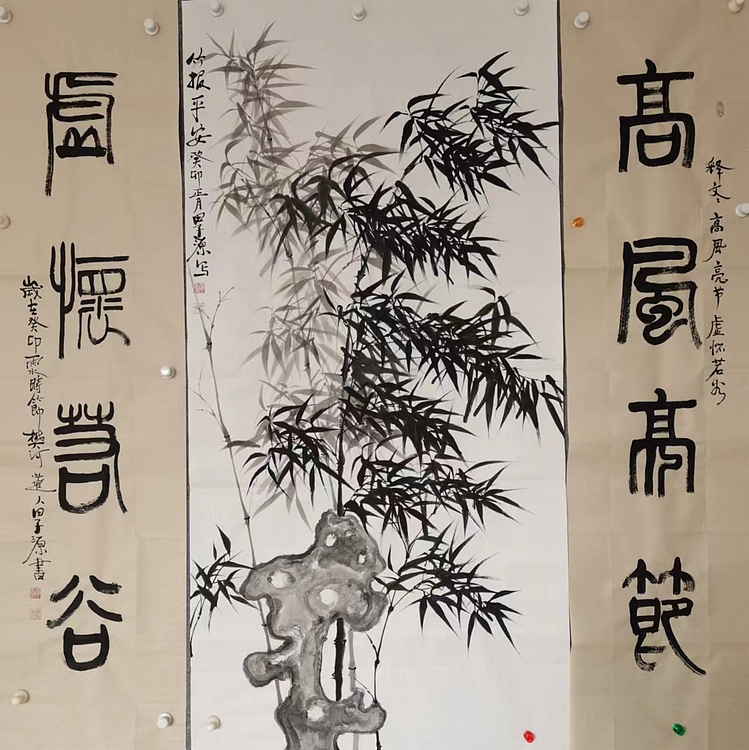 高風亮節
释文：高風亮节 虚怀若谷
竹报平安 癸卯正月田子源写
虛懷若谷
歲在癸卯時節 河道人田子源書